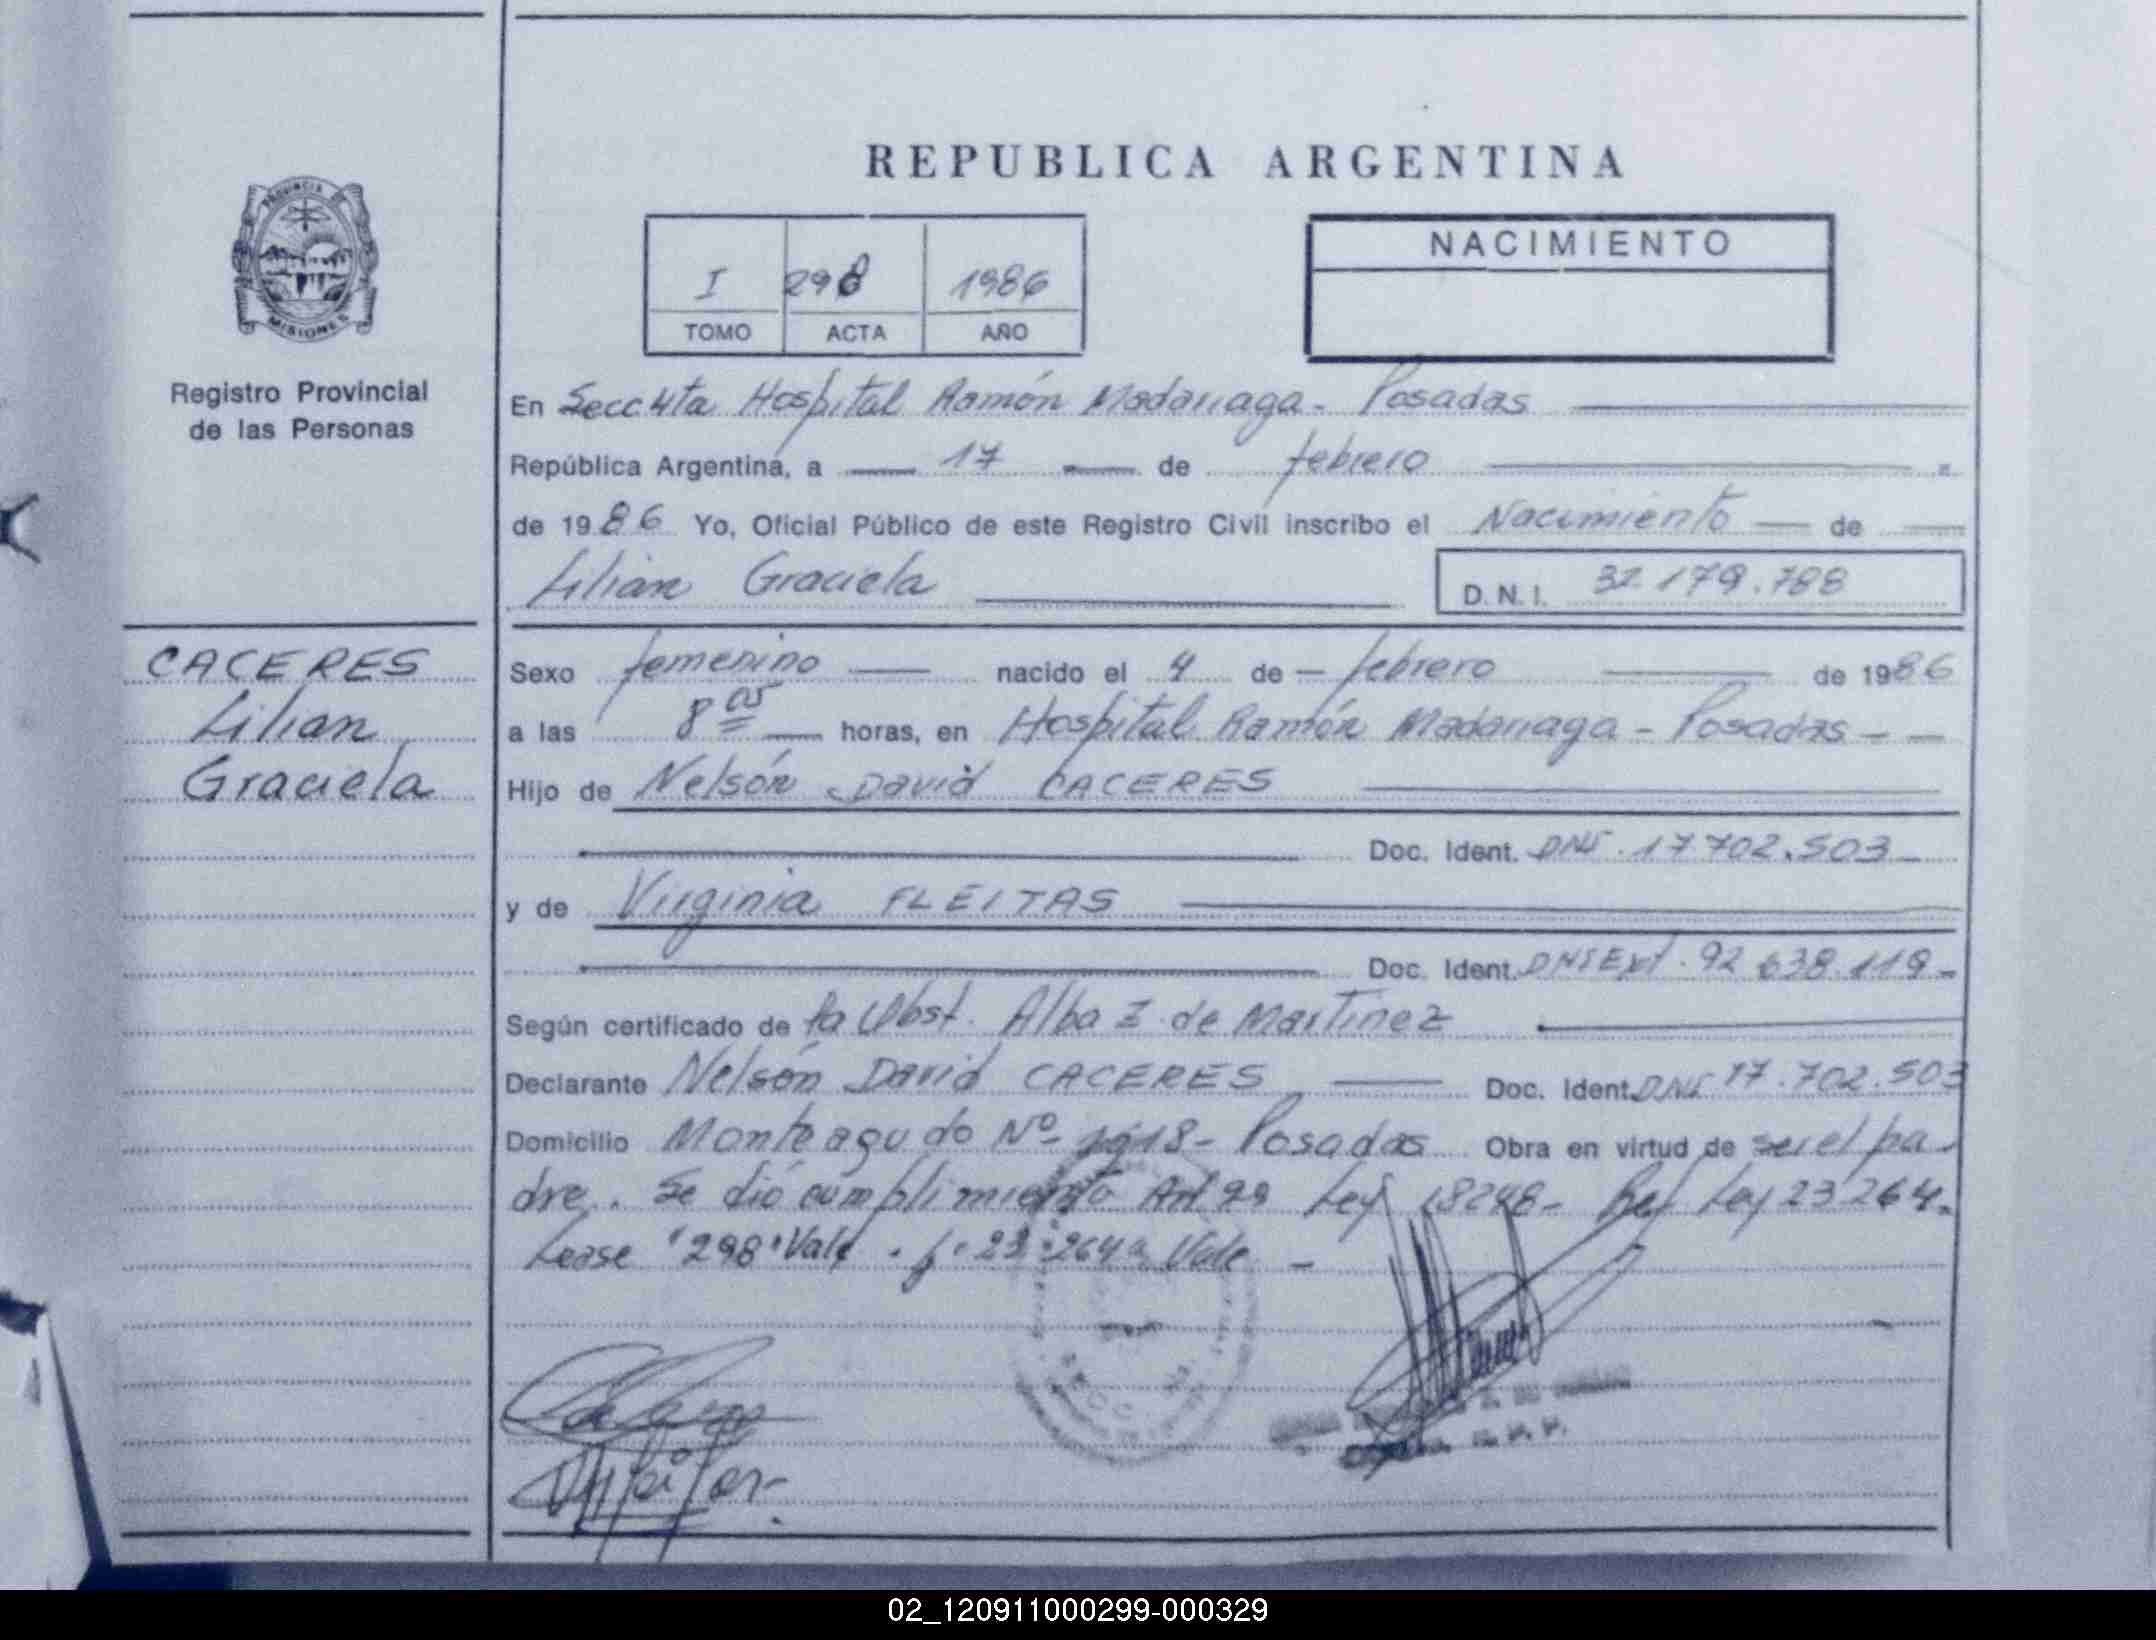 REPUBLICA ARGENTINA
PROVINCIA DE
MISIONES
Registro Provincial
de las Personas
I 298 1986
TOMO ACTA AÑO
NACIMIENTO
En Secc 4ta Hospital Ramón Madariaga - Posadas
República Argentina, a 17 de febrero
de 1986 Yo, Oficial Público de este Registro Civil inscribo el Nacimiento de
Lilian Graciela D.N.I. 32.179.788
CACERES
Lilian
Graciela
Sexo femenino nacido el 4 de febrero de 1986
a las 8 05 horas, en Hospital Ramón Madariaga - Posadas - -
Hijo de Nelsón David CACERES
Doc. Ident. DNI. 17.702.503
y de Virginia FLEITAS
Doc. Ident. DNI Ext. 92.638.119-
Según certificado de la Obst. Alba Z de Martinez
Declarante Nelsón David CACERES Doc. Ident. DNI 17.702.503
Domicilio Monteagudo Nº Posadas Obra en virtud de ser el pa-
dre. Se dió cumplimiento Art 29 Ley 18248- Ref Ley 23264.
Lease "298" Vale. "23.264" Vale -
02_120911000299-000329